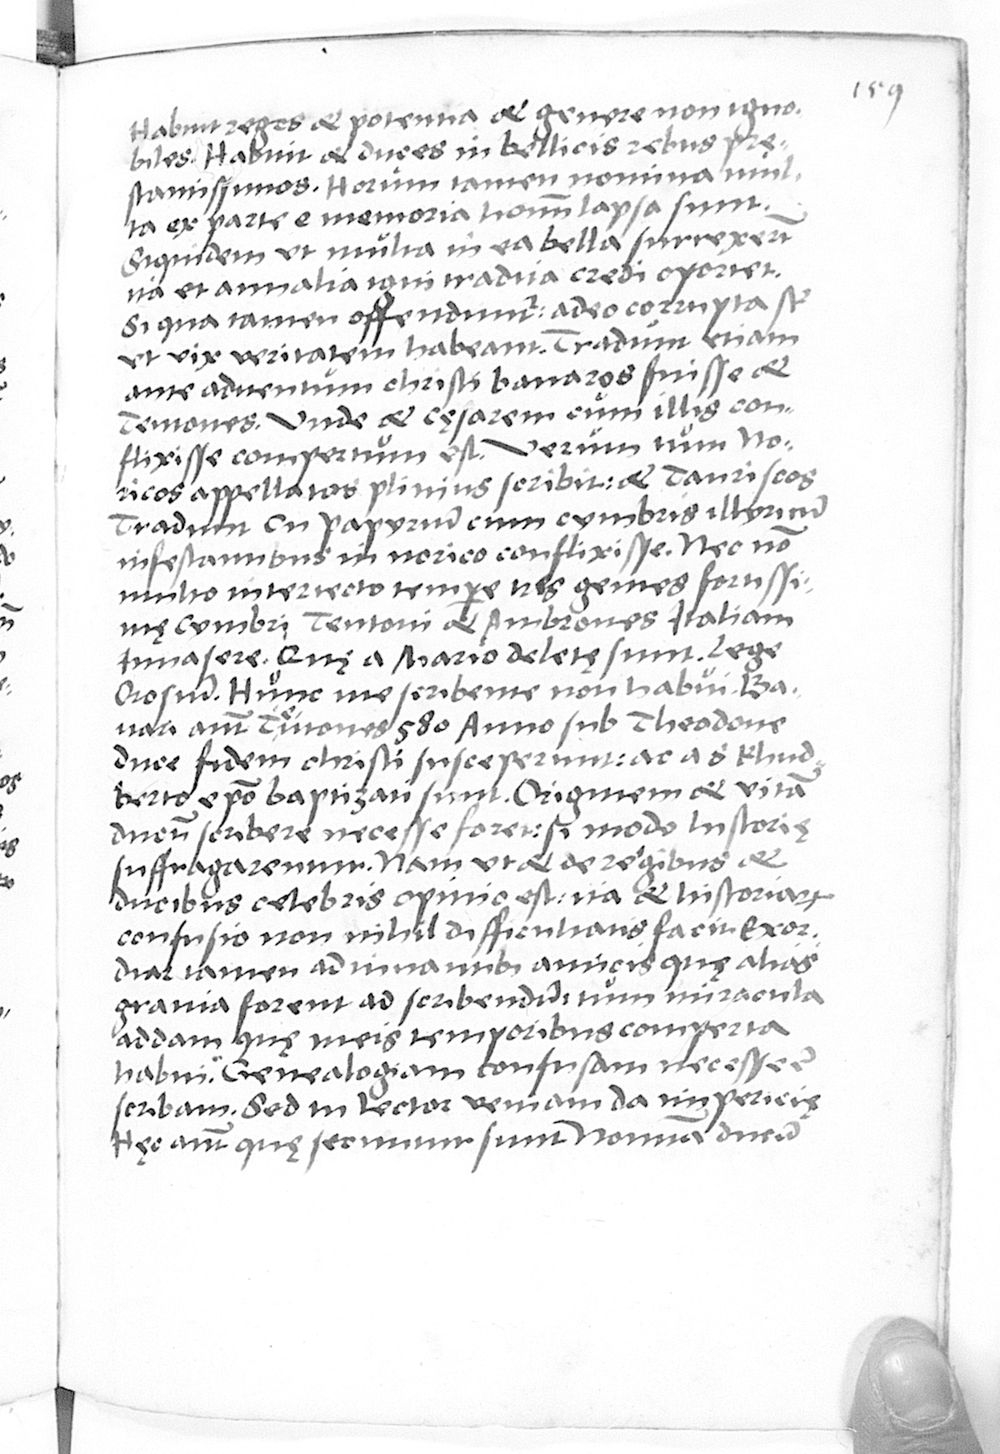 159
Habuit reges & potentia & genere non igno-
biles. Habuit & duces in bellicis rebus prę-
stantissimos. Horum tamen nomina mul-
ta ex parte e memoria hoim̄ lapsa sunt.
Siquidem ut multa in ea bella surrexerūt
ita et annalia igni tradita credi oportet.
Si qua tamen offenduntᵘʳ: adeo corrupta st̄
ut vix veritatem habeant. Tradunt etiam
ante aduentum christi bauaros fuisse &
Teutones. Vnde & Cęsarem cum illis con-
flixisse compertum est. Verum tum No-
ricos appellatos plinius scribit: & Tauriscos
Tradunt Cn Papyriū cum cymbris illyricū
infestantibus in norico conflixisse. Nec nō
multo interiecto tempe tres gentes fortissi-
mę Cymbri Teutoni & Ambrones Italiam
Inuasere. Quę a Mario deletę sunt. Lege
Orosiū. Hunc me scribente non habui. Ba-
uari aūt Teutones 580 Anno sub Theodone
duce fidem christi susceperunt: ac a s Rhud-
berto epō baptizati sunt. Originem & vitā
ducū scribere necesse foret: si modo historię
suffragarentur. Nam ut & de regibus &
ducibus celebris opinio est: ita & historiarꝝ
confusio non nihil difficultatis facit. Exor-
diar tamen adiuuantibus amicis quę alias
grauia forent ad scribendū: tum miracula
addam quę meis temporibus comperta
habui. Genealogiam confusam necesse ē
scribam. Sed tu lector veniam da imperitię
Hęc aūt quę secuntur sunt Nomīa ducū